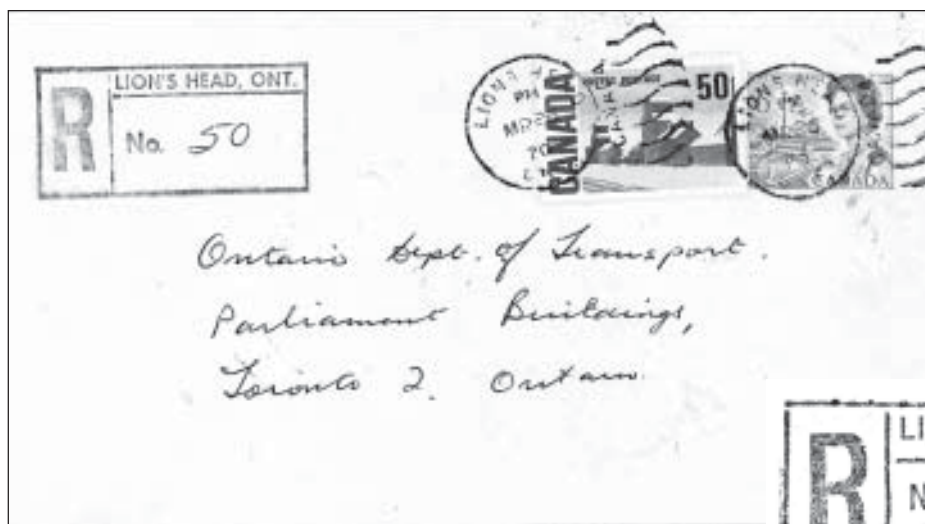 R LION'S HEAD, ONT.
No. 50
LIONS
PM
70
CANADA
50
PM
CANADA
Ontario Dept. of Transport.
Parliament Buildings,
Toronto 2. Ontario
R LI
N